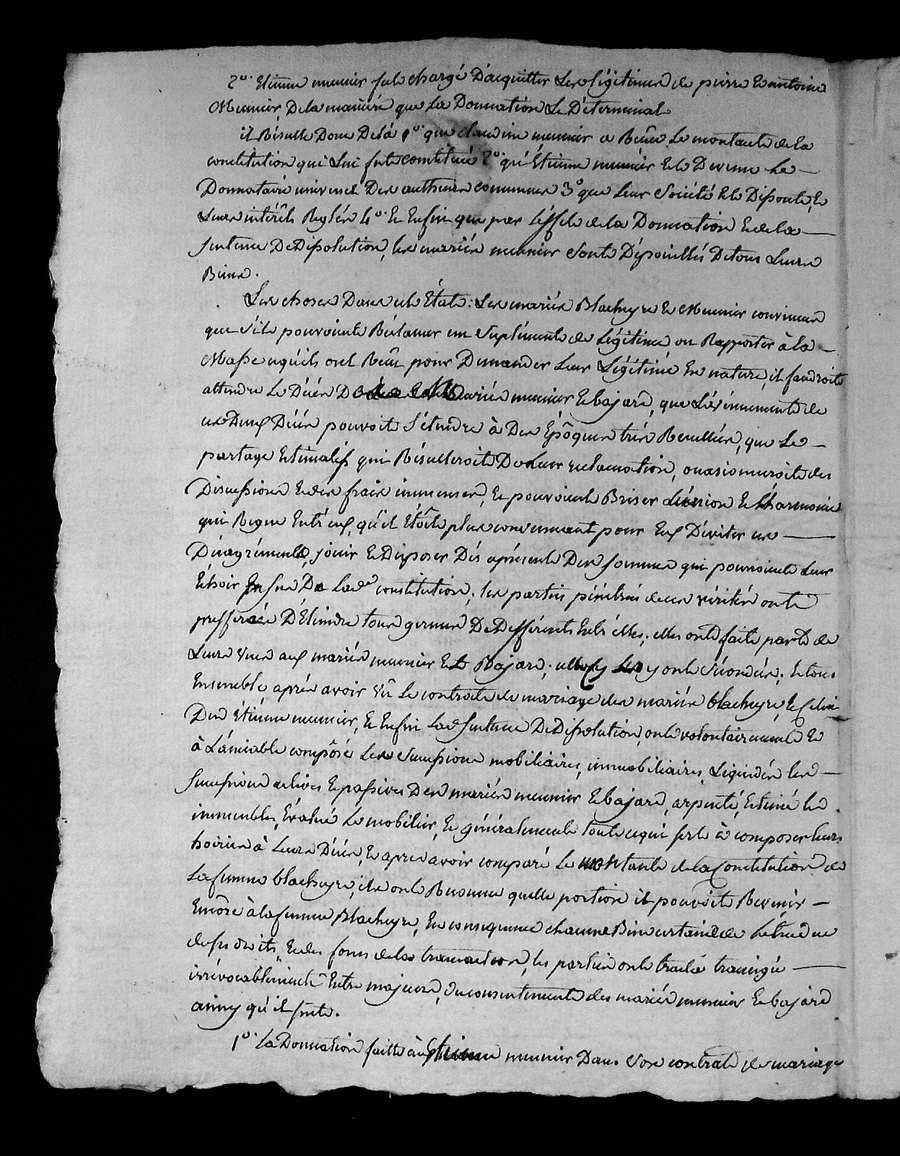 2° Etienne meunier fut chargé D'acquitter Les légitimes de pierre Et antoine
Meunier, De la maniere que La Donnation Le Determinat
il Résulte Donc De là 1° que claudine meunier a Reçu Le montant de la
constitution qui Lui fut constitué 2° qu'Étienne meunier Est Devenu Le
Donnataire universel Des autheurs communs 3° que Leur Société Est Dissoute, Et
Leurs intérêts Réglés 4° Et Enfin que par L'effet de la Donnation Et de la
sentence De Dissolution, les mariés meunier sont Dépouillés De tous Leurs
Biens.
Les choses Dans cet État: Les mariés Blacheyre Et Meunier convinrent
que s'ils pouvoient Réclamer un Suplément de Légitime ou Rapporter à la
Masse ce qu'ils ont Reçu pour Demander Leur Légitime En nature, il faudroit
attendre Le Décès Des mariés meunier Et bajard, que L'évenement de
ces Deux Décès pouvoit s'étendre à Des Epôques très Reculées, que Le
partage Estimatif qui Résulteroit De Leur réclamation, occasionneroit des
Discussions Et des frais immenses, Et pouvoient Briser L'union Et L'harmonie
qui Regne Entr'eux, qu'il Étoit plus convennant pour Eux D'éviter ces
Désagréments, jouir Et Disposer Dès aprésent Des sommes qui pourroient Leur
Echoir En sus De Lad. constitution; les parties pénétrées de ces vérités ont
prefferées D'Eteindre tous germes De Différents Entr'elles, elles ont fait part de
Leurs vues aux mariés meunier Et Bajard; y ont Sécondés; Et tous
Ensemble après avoir Vû Le contrat de mariage des mariés blacheyre, Et Celui
Dud. Etienne meunier, Et Enfin Lad. Sentence De Dissolution, ont volontairement Et
à L'amiable composé Les Successions mobiliaires, immobiliaires, Liquidés les
successions actives Et passives Des mariés meunier Et bajard, arpenté, Estimé les
immeubles, Evalué Le mobilier, Et généralement tout ce qui sert à composer leurs
hoiries à Leurs Décès, Et après avoir comparé Le montant de la Constitution de
La femme blacheyre, ils ont Reconnu quelle portion il pouvoit Revenir
Encôre à la femme Blacheyre, En conséquence chacune Bien certaine de L'étendue
de ses droits, Et des forces de la transaction, les parties ont traité transigé
irrévocablement Entre majeurs, du consentement des mariés meunier Et bajard
ainsy qu'il suit.
1° La Donnation faitte à Etienne meunier Dans son contrat de mariage